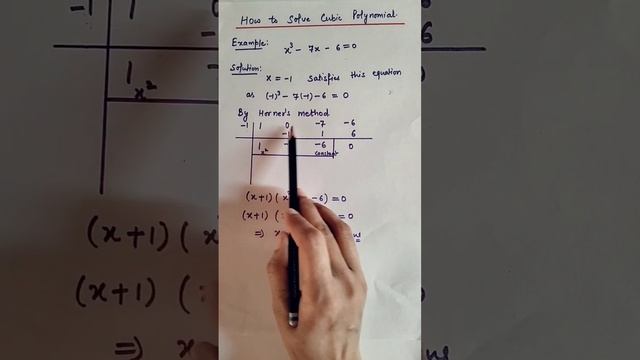 How to Solve Cubic Polynomial.
Example: x³ - 7x - 6 = 0
Solution:
x = -1 satisfies this equation
as (-1)³ - 7(-1) - 6 = 0
By Horner's method
-1 | 1 0 -7 -6
-1 1 6
1 x² - -6 constant 0
(x+1) (x² - 6) = 0
(x+1) ( = 0
⇒ x